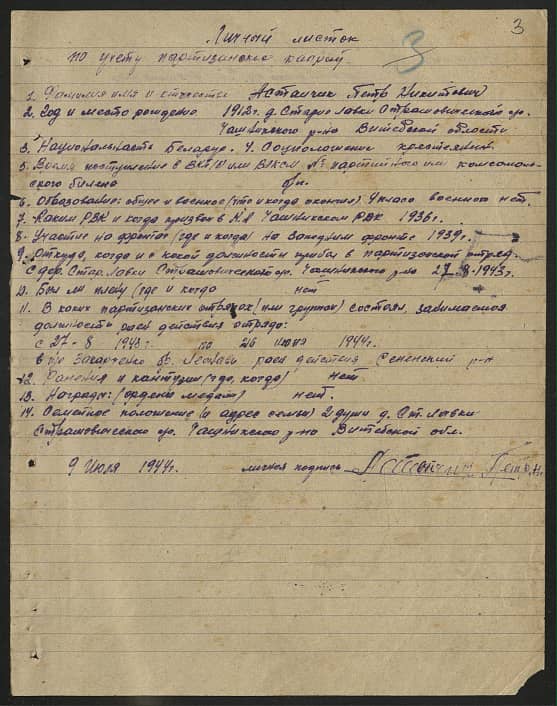 3
Личный листок
по учету партизанских кадров
3
1. Фамилия имя и отчество Астапчик Петр Никитович
2. Год и место рождения 1912 г. д. Старые Лавки
Чашникского р-на Витебской области
3. Национальность Беларус. 4. Соцположение крестянин
5. Время поступления в ВКП/б/ или ВЛКСМ № партийного или комсомоль-
ского билета б/п.
6. Образование: общее и военное (что и когда окончил) 4 класса военного нет.
7. Каким РВК и когда призван в К.А Чашникским РВК 1936 г.
8. Участие на фронтах (где и когда) на Западним фронте 1939 г.
9. Откуда, когда и в какой должности прибыл в партизанский отряд
с дер. Стар. Лавки Чашникского р-на 27.8-1943 г.
10. Был ли плену (где и когда нет
11. В каких партизанских отрядах (или группах) состоял, занимаемая
должность район действия отряда:
с 27-8 1943 г. по 26 июня 1944 г.
Захарченко район действия Сенненский р-н
12. Ранения и контузии (где, когда) нет
13. Награды: (ордена медали) нет.
14. Семейное положение (и адрес семьи) 2 души д. Ст. Лавки
Чашникского р-на Витебской обл.
9 Июля 1944 г. личная подпись Астапчик Петр